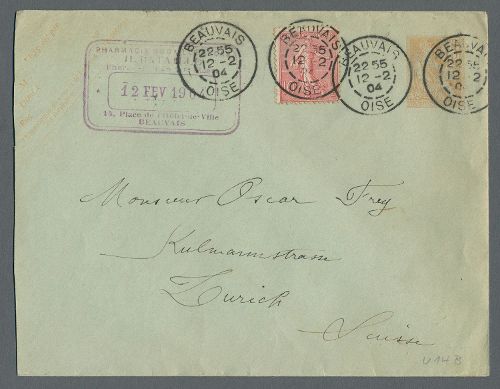 PHARMACIE
12 FEV 1904
14, Place de l'Hôtel-de-Ville
BEAUVAIS
BEAUVAIS
22 55
12 -2
04
OISE
BEAUVAIS
22 55
12 -2
OISE
BEAUVAIS
22 55
12 -2
04
OISE
BEAUVAIS
22 55
12 -2
OISE
Monsieur Oscar Frey
Kulmannstrasse
Zurich
Suisse
U14B